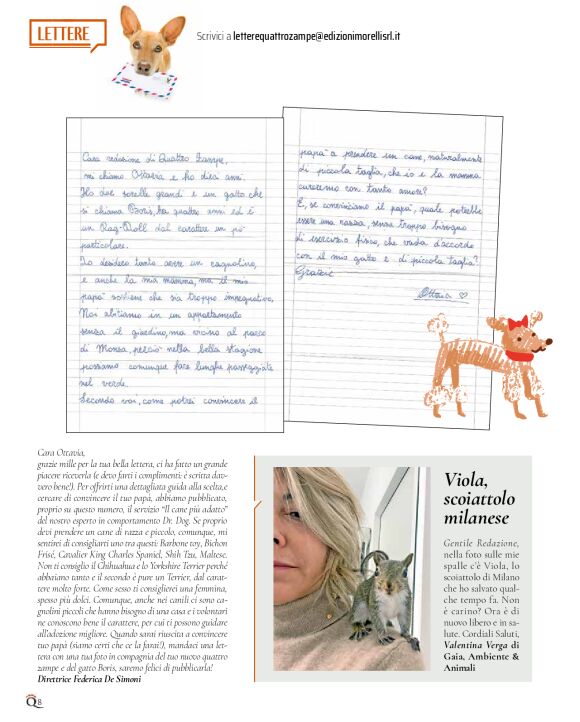 LETTERE
Scrivici a letterequattrozampe@edizionimorellisrl.it
Cara redazione di Quattro Zampe,
mi chiamo Ottavia e ho dieci anni.
Ho due sorelle grandi e un gatto che
si chiama Boris, ha quattro anni ed è
un Rag-Doll dal carattere un po'
particolare.
Io desidero tanto avere un cagnolino,
e anche la mia mamma, ma il mio
papà sostiene che sia troppo impegnativo.
Noi abitiamo in un appartamento
senza il giardino, ma vicino al parco
di Monza, perciò nella bella stagione
possiamo comunque fare lunghe passeggiate
nel verde.
Secondo voi, come potrei convincere il
papà a prendere un cane, naturalmente
di piccola taglia, che io e la mamma
cureremo con tanto amore?
E, se convinciamo il papà, quale potrebbe
essere una razza, senza troppo bisogno
di esercizio fisico, che vada d'accordo
con il mio gatto e di piccola taglia?
Grazie
Ottavia
Cara Ottavia,
grazie mille per la tua bella lettera, ci ha fatto un grande
piacere riceverla (e devo farti i complimenti: è scritta dav-
vero bene!). Per offrirti una dettagliata guida alla scelta,e
cercare di convincere il tuo papà, abbiamo pubblicato,
proprio su questo numero, il servizio "Il cane più adatto"
del nostro esperto in comportamento Dr. Dog. Se proprio
devi prendere un cane di razza e piccolo, comunque, mi
sentirei di consigliarti uno tra questi: Barbone toy, Bichon
Frisé, Cavalier King Charles Spaniel, Shih Tzu, Maltese.
Non ti consiglio il Chihuahua e lo Yorkshire Terrier perché
abbaiano tanto e il secondo è pure un Terrier, dal carat-
tere molto forte. Come sesso ti consiglierei una femmina,
spesso più dolci. Comunque, anche nei canili ci sono ca-
gnolini piccoli che hanno bisogno di una casa e i volontari
ne conoscono bene il carattere, per cui ti possono guidare
all'adozione migliore. Quando sarai riuscita a convincere
tuo papà (siamo certi che ce la farai!), mandaci una let-
tera con una tua foto in compagnia del tuo nuovo quattro
zampe e del gatto Boris, saremo felici di pubblicarla!
Direttrice Federica De Simoni
Viola,
scoiattolo
milanese
Gentile Redazione,
nella foto sulle mie
spalle c'è Viola, lo
scoiattolo di Milano
che ho salvato qual-
che tempo fa. Non
è carino? Ora è di
nuovo libero e in sa-
lute. Cordiali Saluti,
Valentina Verga di
Gaia, Ambiente &
Animali
Q8